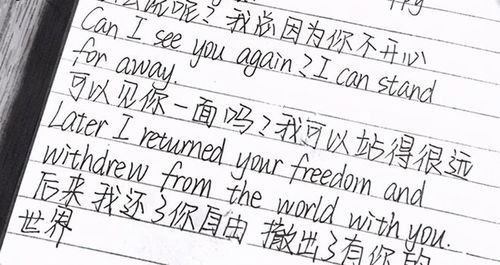 呢？我总因为你不开心
Can I see you again？I can stand
for away
可以见你一面吗？我可以站得很远
Later I returned your freedom and
withdrew from the world with you.
后来我还了你自由 撤出了有你的
世界